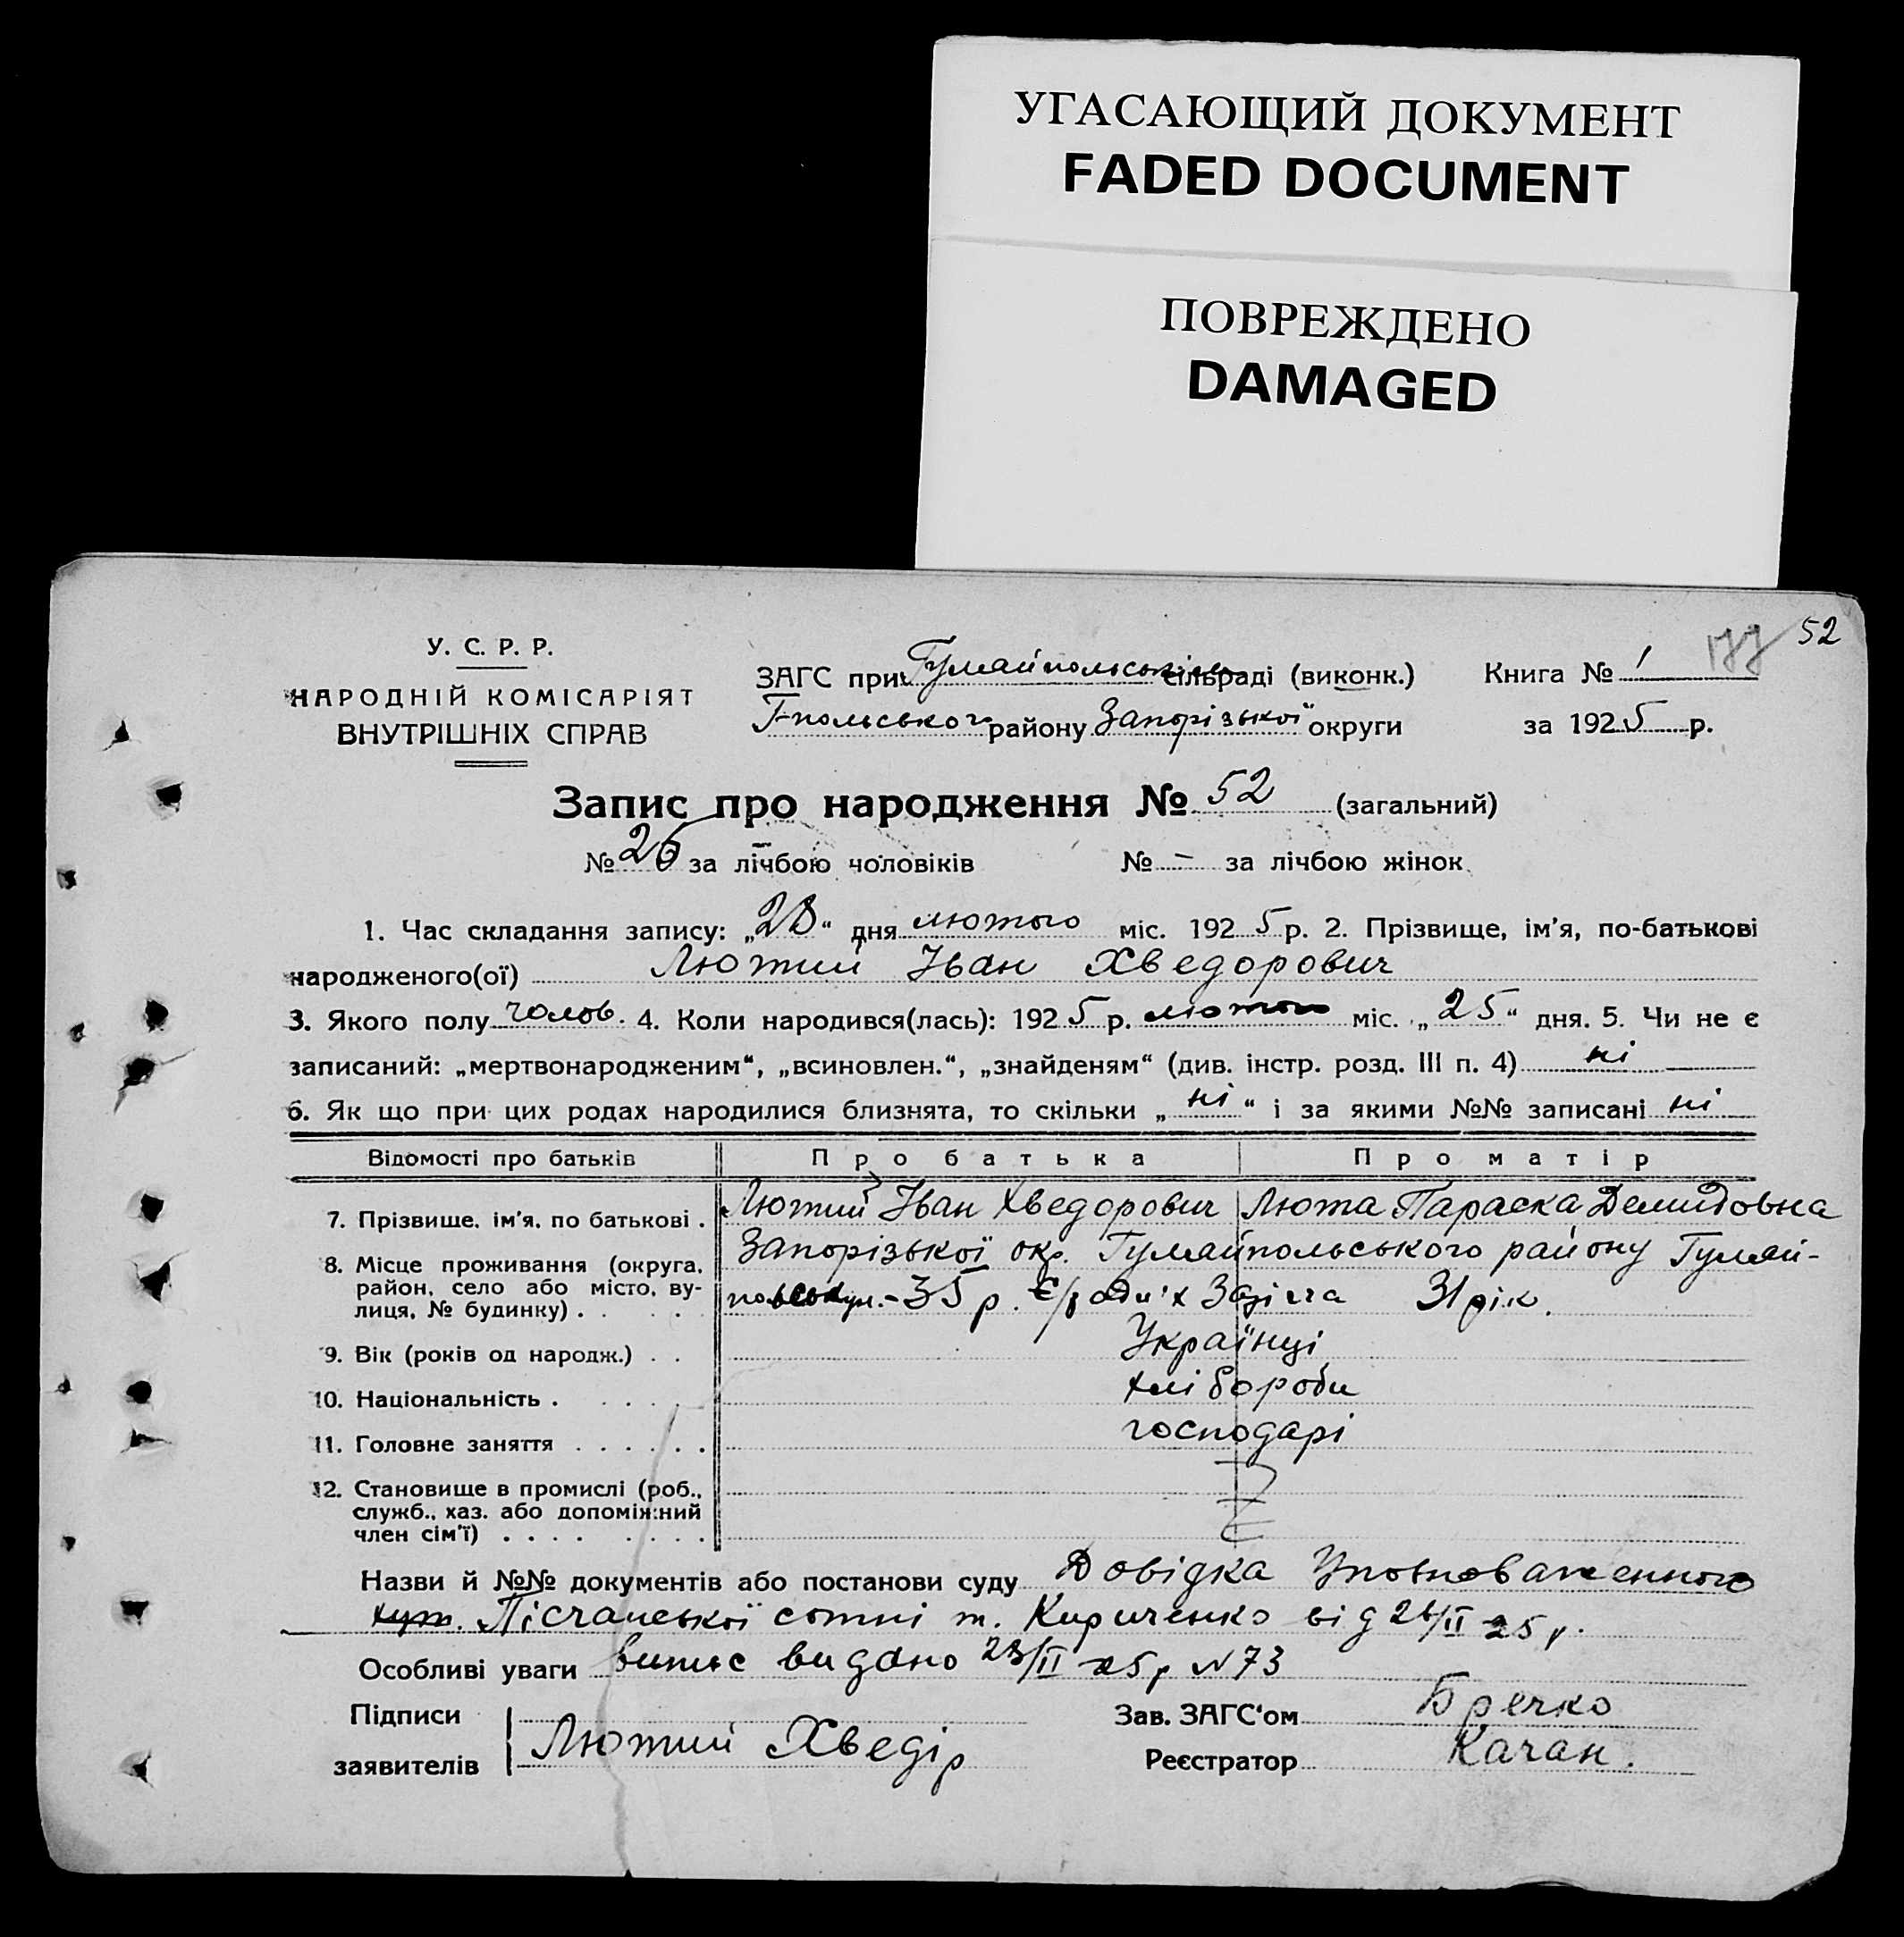 УГАСАЮЩИЙ ДОКУМЕНТ
FADED DOCUMENT
ПОВРЕЖДЕНО
DAMAGED
177 52
У. С. Р. Р.
НАРОДНІЙ КОМІСАРІЯТ
ВНУТРІШНІХ СПРАВ
ЗАГС при Гуляйпольській сільраді (виконк.)
Г-польського району Запорізької округи
Книга № 1
за 1925 р.
Запис про народження № 52 (загальний)
№ 26 за лічбою чоловіків № - за лічбою жінок
1. Час складання запису: „28“ дня лютого міс. 1925 р. 2. Прізвище, ім'я, по-батькові
народженого(ої) Лютий Іван Хведорович
3. Якого полу чолов. 4. Коли народився(лась): 1925 р. лютого міс. „25“ дня. 5. Чи не є
записаний: „мертвонародженим“, „всиновлен.“, „знайденям“ (див. інстр. розд. III п. 4) ні
6. Як що при цих родах народилися близнята, то скільки „ні“ і за якими №№ записані ні
Відомості про батьків Про батька Про матір
7. Прізвище, ім'я, по батькові . Лютий Іван Хведорович Люта Параска Демидовна
8. Місце проживання (округа, район, село або місто, вулиця, № будинку) . . Запорізької окр. Гуляйпольського району Гуляй-
35 р. 31 рік.
9. Вік (років од народж.) . . Українці
10. Національність . хлібороби
11. Головне заняття . . . . . . господарі
12. Становище в промислі (роб.,
служб., хаз. або допоміжний
член сім'ї) . . . . . . . .
Назви й №№ документів або постанови суду Довідка Уповноваженного
хут. Пісчанської сотні т. Кириченко від 26/II 25 р.
Особливі уваги випис видано 28/II 25 р N 73
Підписи
заявителів Лютий Хведір
Зав. ЗАГС'ом Бречко
Реєстратор Качан.